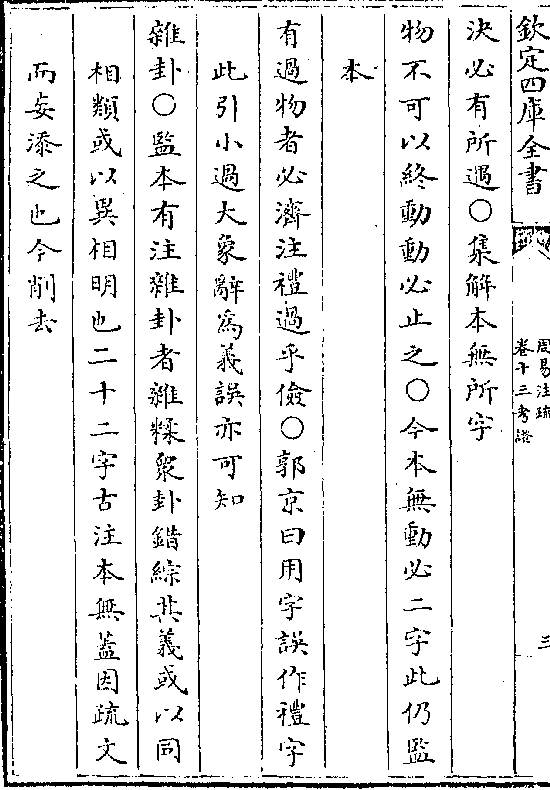 欽定四庫全書
周易注疏
卷十三考證
三
決必有所遇○集解本無所字
物不可以終動動必止之○今本無動必二字此仍監
本
有過物者必濟注禮過乎儉○郭京曰用字誤作禮字
此引小過大象辭為義誤亦可知
雜卦○監本有注雜卦者雜糅衆卦錯綜其義或以同
相類或以異相明也二十二字古注本無蓋因疏文
而妄添之也今削去